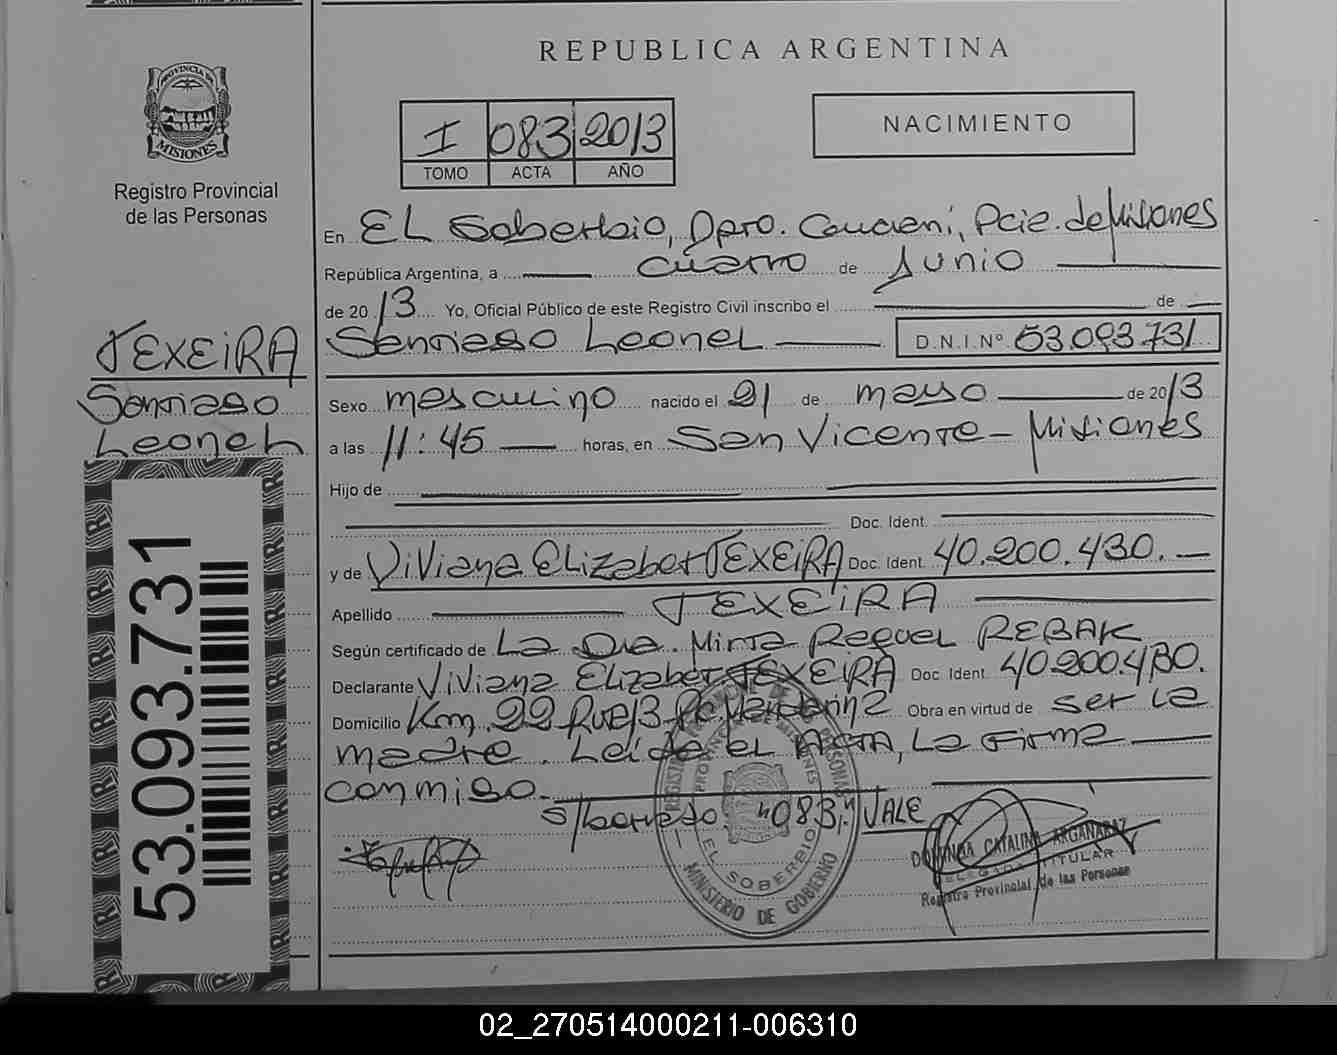 REPUBLICA ARGENTINA
PROVINCIA DE
MISIONES
Registro Provincial
de las Personas
I 083 2013
TOMO ACTA AÑO
NACIMIENTO
En El Soberbio, Dpto. Guaraní, Pcia. de Misiones
República Argentina, a cuatro de Junio
de 2013 Yo, Oficial Público de este Registro Civil inscribo el de
Santiago Leonel D.N.I.Nº 53.093.731
TEXEIRA
Santiago
Leonel
Sexo masculino nacido el 21 de mayo de 2013
a las 11:45 horas, en San Vicente - Misiones
Hijo de
Doc. Ident.
y de Viviana Elizabet TEXEIRA Doc. Ident. 40.200.430.
Apellido TEXEIRA
Según certificado de La Dra. Mirta Raquel REBAK
Declarante Viviana Elizabet TEXEIRA Doc. Ident. 40.200.430.
Domicilio Km. 22 Ruta 13 Obra en virtud de ser la
madre. Leída el Acta, La firma
conmigo.
s/borrado "083". VALE
53.093.731
EL SOBERBIO
MINISTERIO DE GOBIERNO
CATALINA ARGAÑARAZ
DELEGADA TITULAR
Registro Provincial de las Personas
02_270514000211-006310